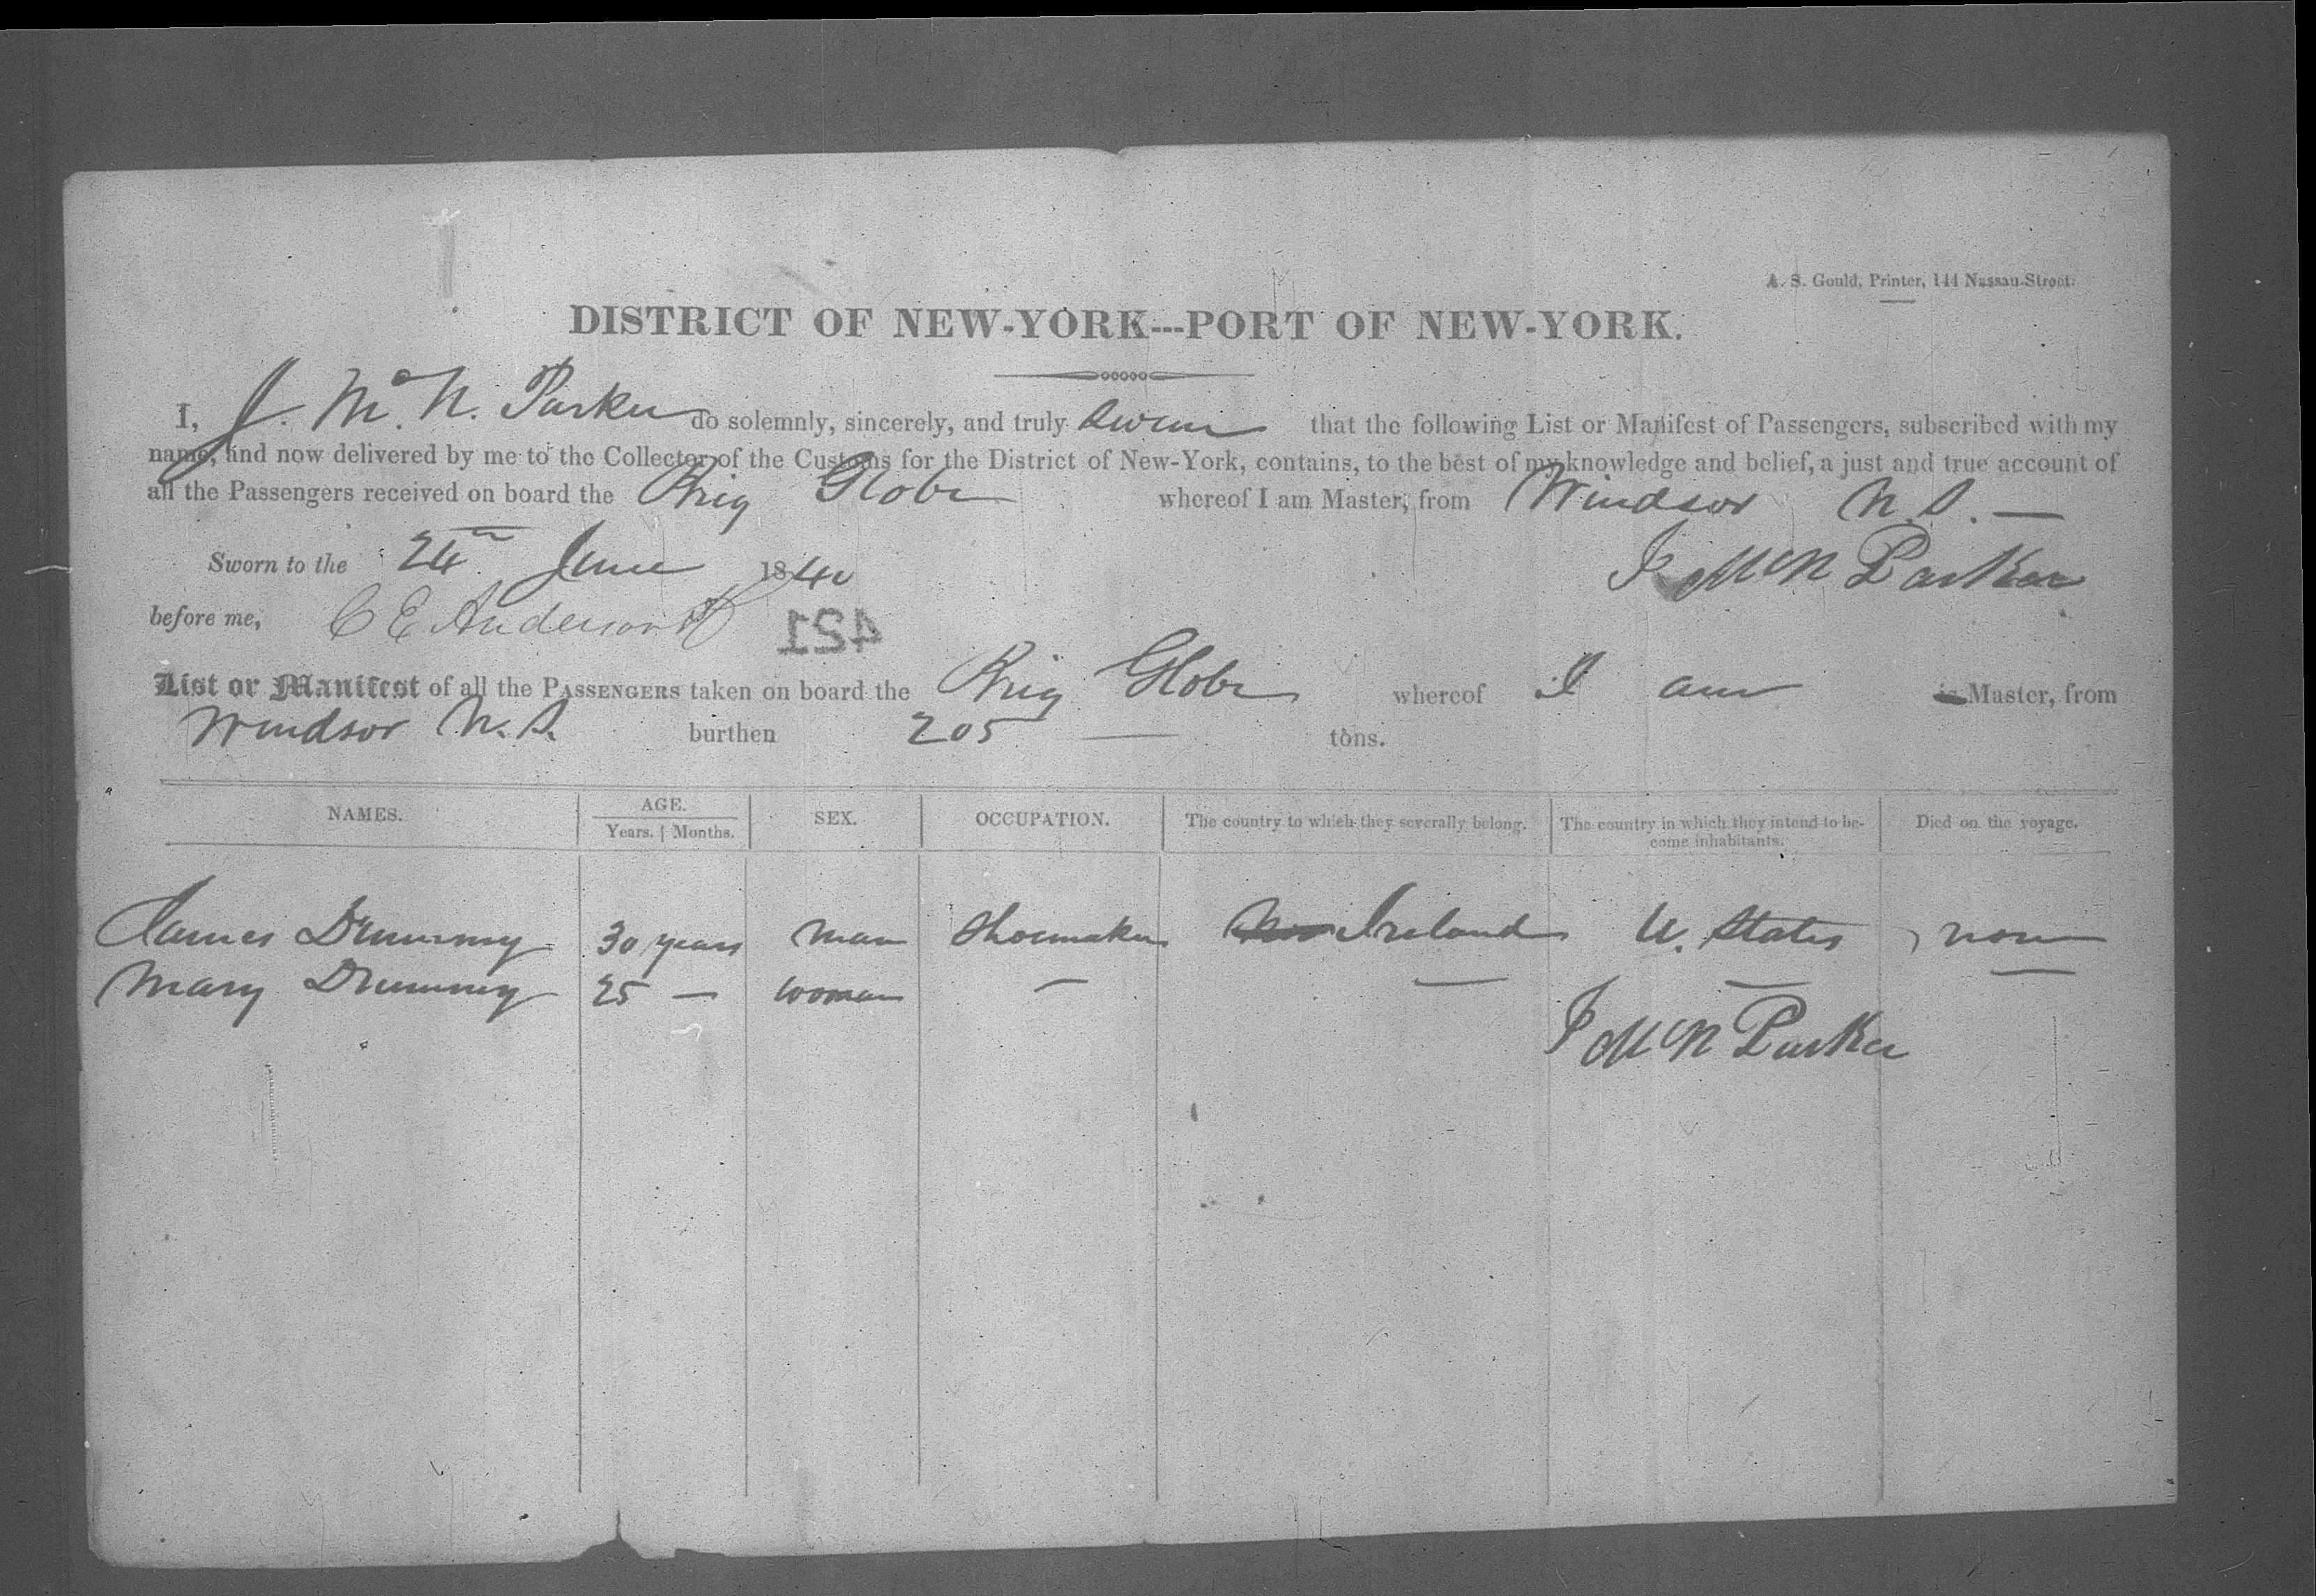 A. S. Gould, Printer, 144 Nassau-Street.
DISTRICT OF NEW-YORK---PORT OF NEW-YORK.
I, J. McN. Parker do solemnly, sincerely, and truly swear that the following List or Manifest of Passengers, subscribed with my
name, and now delivered by me to the Collector of the Customs for the District of New-York, contains, to the best of my knowledge and belief, a just and true account of
all the Passengers received on board the Brig Globe whereof I am Master, from Windsor N.S. —
Sworn to the 24th June 1840
J McN Parker
before me, C E Anderson
421
List or Manifest of all the PASSENGERS taken on board the Brig Globe whereof I am is Master, from
Windsor N.S. burthen 205 — tons.
NAMES. AGE. SEX. OCCUPATION. The country to which they severally belong. The country in which they intend to be-
come inhabitants. Died on the voyage.
Years. Months.
James Drummy 30 years man Shoemaker Ireland U. States none
Mary Drummy 25 — woman — — — —
J McN Parker